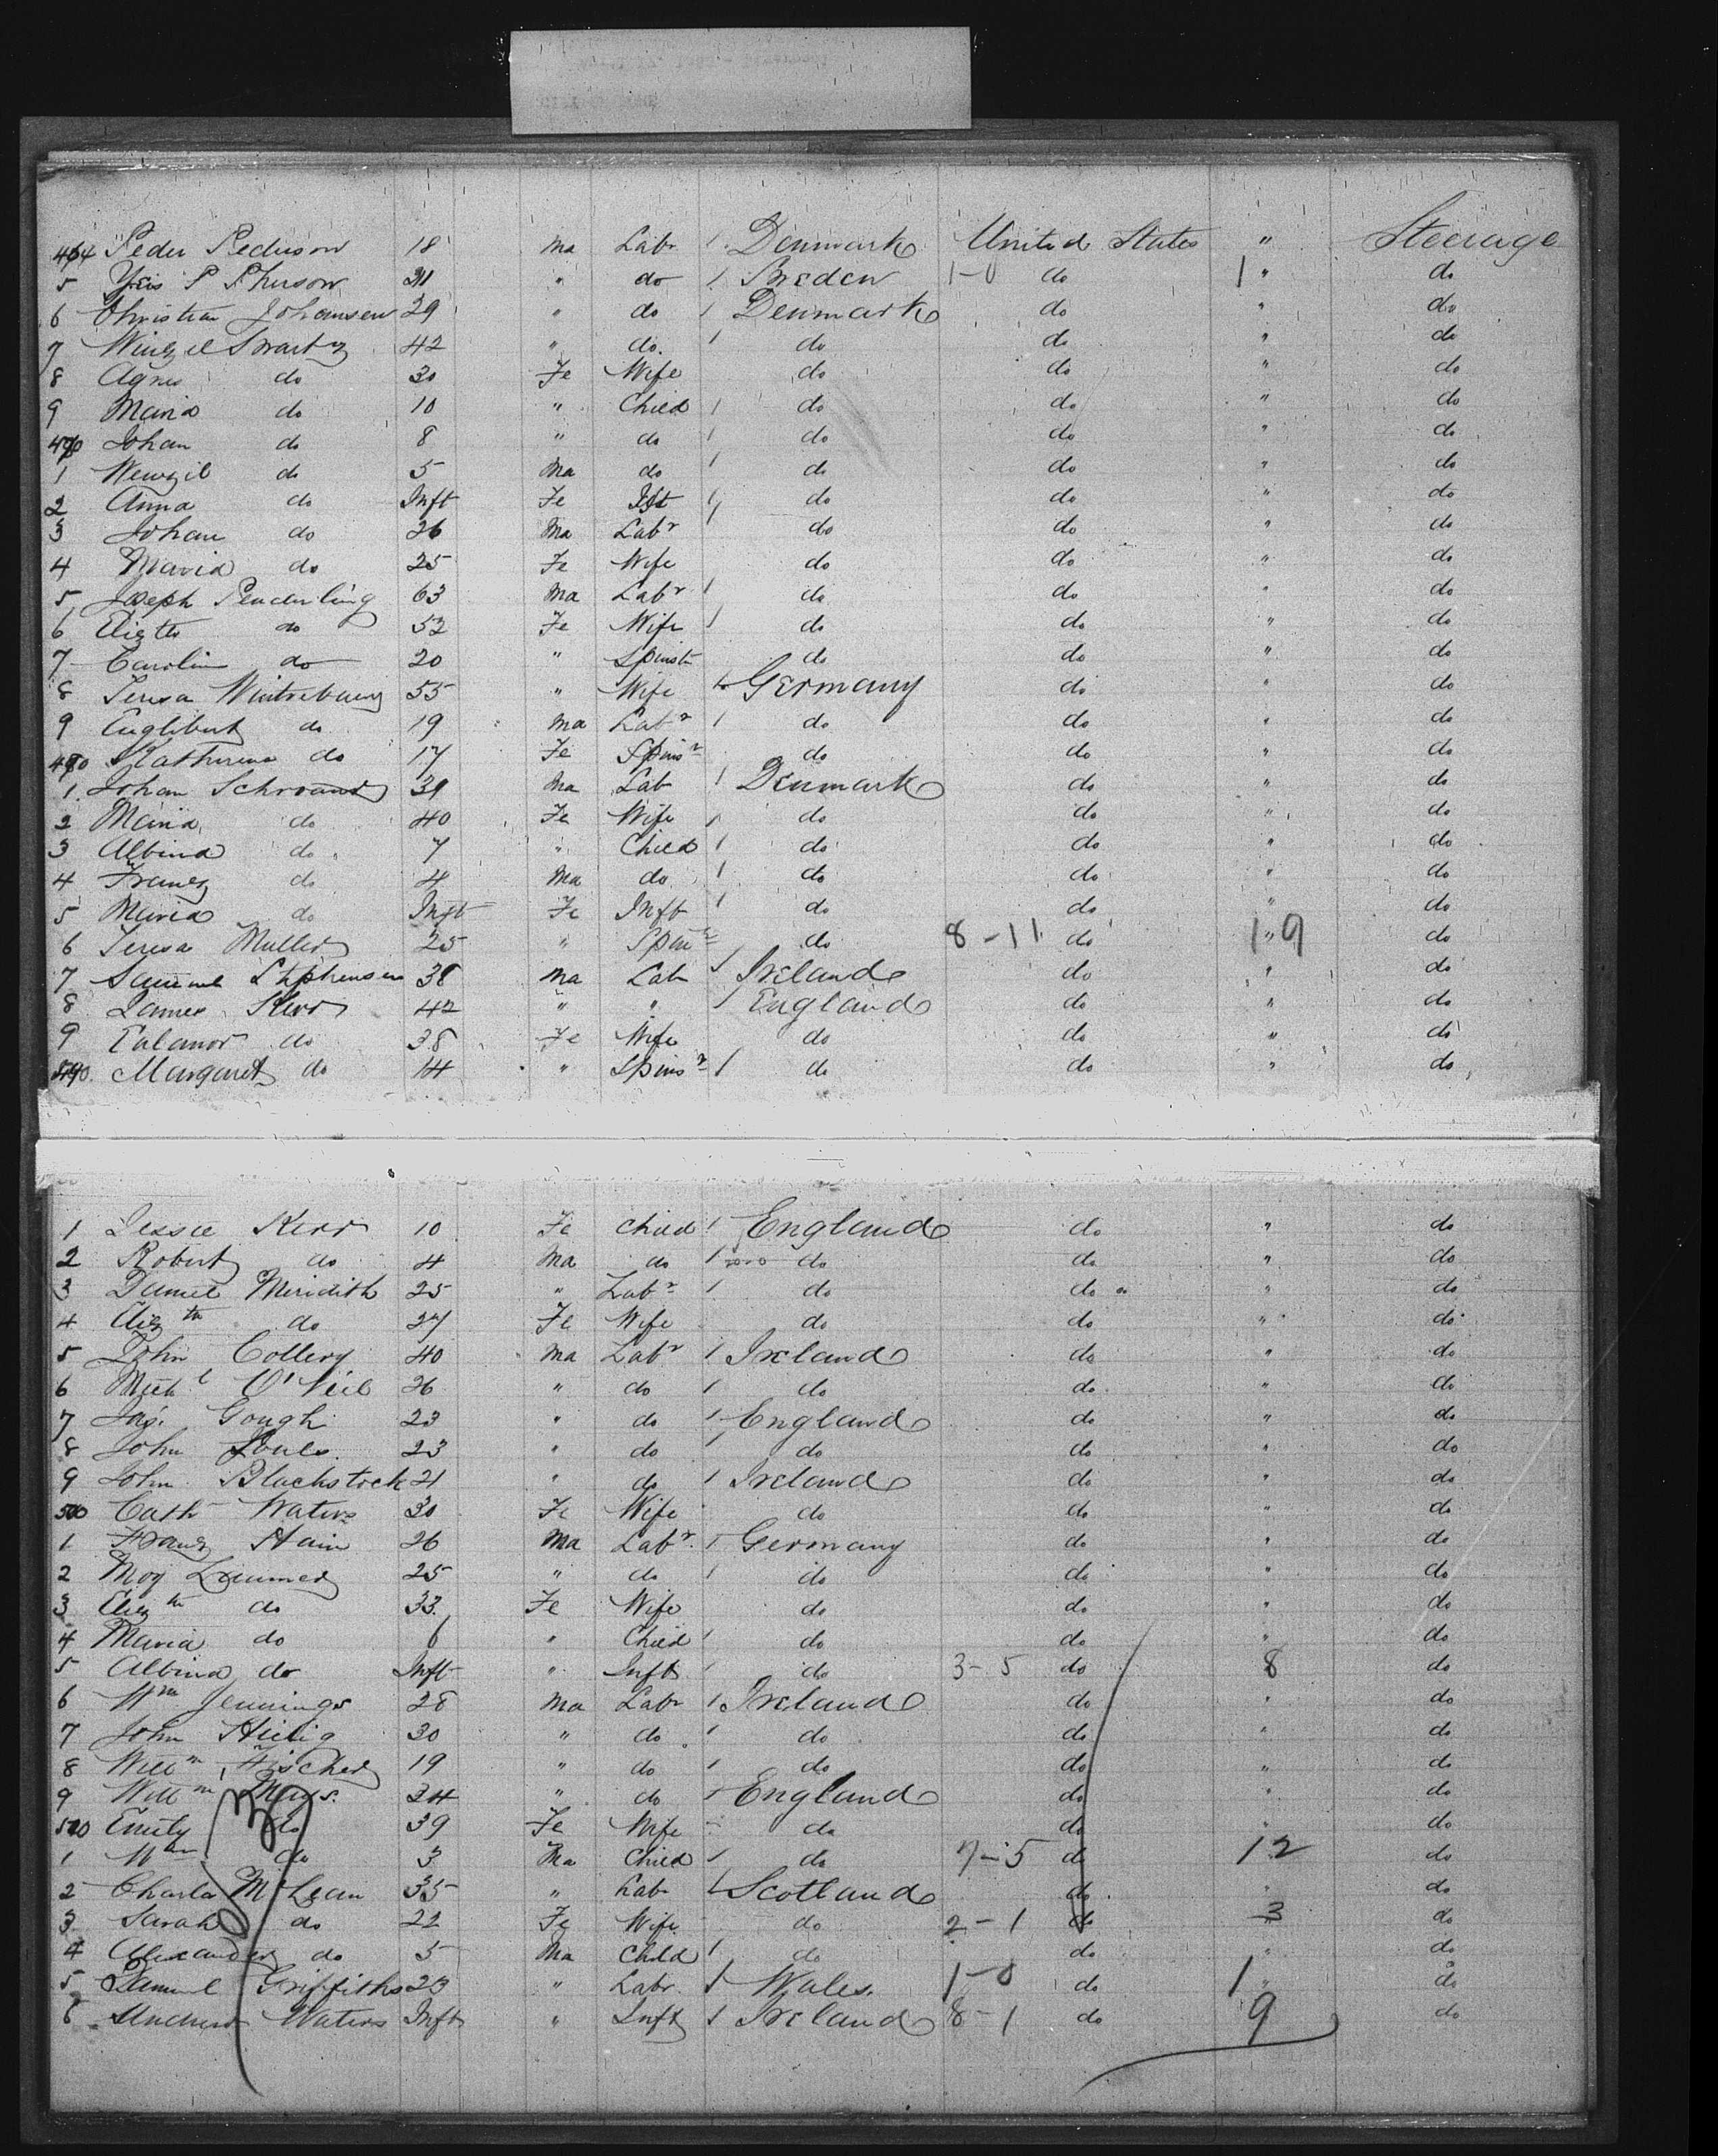 464 Peder Pederson 18 Ma Labr / Denmark United States " Steerage
5 P 21 " do / Sweden 1-0 do 1 " do
6 Christian Johansen 29 " do / Denmark do " do
7 Swartz 42 " do. / do do " do
8 Agnes do 30 Fe Wife do do " do
9 Maria do 10 " Child / do do " do
470 Johan do 8 " do / do do " do
1 Wenzil do 5 Ma do / do do " do
2 Anna do Inft Fe Ift / do do " do
3 Johan do 26 Ma Labr / do do " do
4 Maria do 25 Fe Wife do do " do
5 Joseph Penderling 63 Ma Labr / do do " do
6 Elizth do 52 Fe Wife / do do " do
7 Carolin do 20 " Spinstr do do " do
8 Teresa 55 " Wife Germany do " do
9 Englibert do 19 Ma Labr / do do " do
480 Katherina do 17 Fe Spinsr do do " do
1. Johan 39 Ma Lab / Denmark do " do
2 Maria do 40 Fe Wife / do do " do
3 Albina do 7 " Child / do do " do
4 Franz do 4 Ma do / do do " do
5 Maria do Inft Fe Inft / do do " do
6 Teresa Muller 25 " Spinr do 8-11 do 19 " do
7 Samuel Stphensen 38 Ma Lab / Ireland do " do
8 James Kerr 42 " " / England do " do
9 Ealanor do 38 Fe Wife do do " do
490 Margaret do 14 " Spinsr / do do " do
1 Jessie Kerr 10 Fe Child / England do " do
2 Robert do 4 Ma do / do do " do
3 Daniel Meridith 25 " Labr / do do " do
4 Elizth do 27 Fe Wife do do " do
5 John Collery 40 Ma Labr / Ireland do " do
6 Michl O'Neil 26 " do / do do " do
7 Jas. Gough 23 " do / England do " do
8 John 23 " do / do do " do
9 John Blackstock 21 " do / Ireland do " do
500 Cath Waters 30 Fe Wife do do " do
1 Franz Hain 26 Ma Labr. / Germany do " do
2 25 " do / do do " do
3 Elizth do 33. Fe Wife do do " do
4 Maria do 6 " Child / do do " do
5 Albina do Inft " Inft / do 3-5 do 8 do
6 Wm Jennings 28 Ma Labr / Ireland do " do
7 John 30 " do / do do " do
8 Willm Fischer 19 " do / do do " do
9 Willm Mays. 34 " do / England do " do
510 Emily do 39 Fe Wife do do " do
1 Wm do 3 Ma Child / do 7-5 do 12 do
2 Charles McLean 35 " Lab Scotland do " do
3 Sarah do 22 Fe Wife do 2-1 do 3 do
4 Alexander do 5 Ma Child / do do " do
5 Samuel Griffiths 23 " Labr. / Wales. 1-0 do 1 " do
6 Andrew Waters Inft " Inft / Ireland 8-1 do 9 do